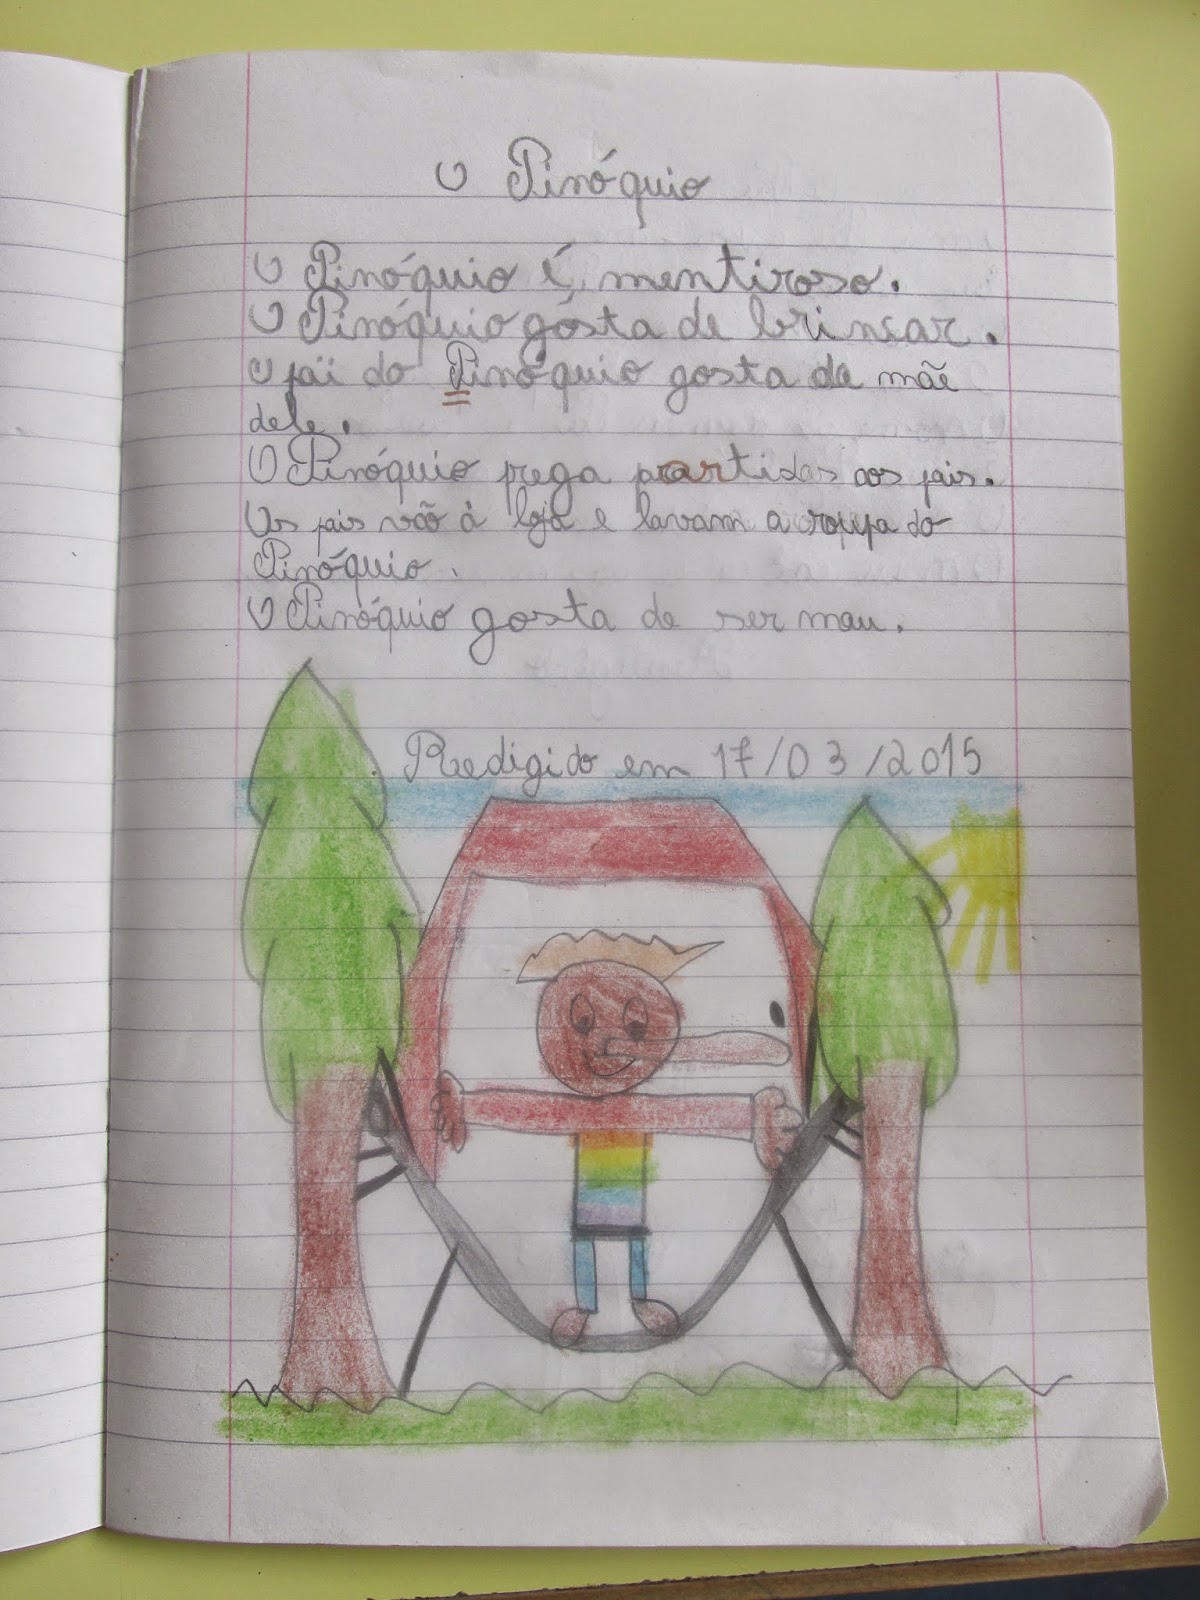 O Pinóquio
O Pinóquio é mentiroso.
O Pinóquio gosta de brincar.
O pai do Pinóquio gosta da mãe
dele.
O Pinóquio prega partidas aos pais.
Os pais vão à loja e lavam a roupa do
Pinóquio.
O Pinóquio gosta de ser mau.
Redigido em 17/03/2015